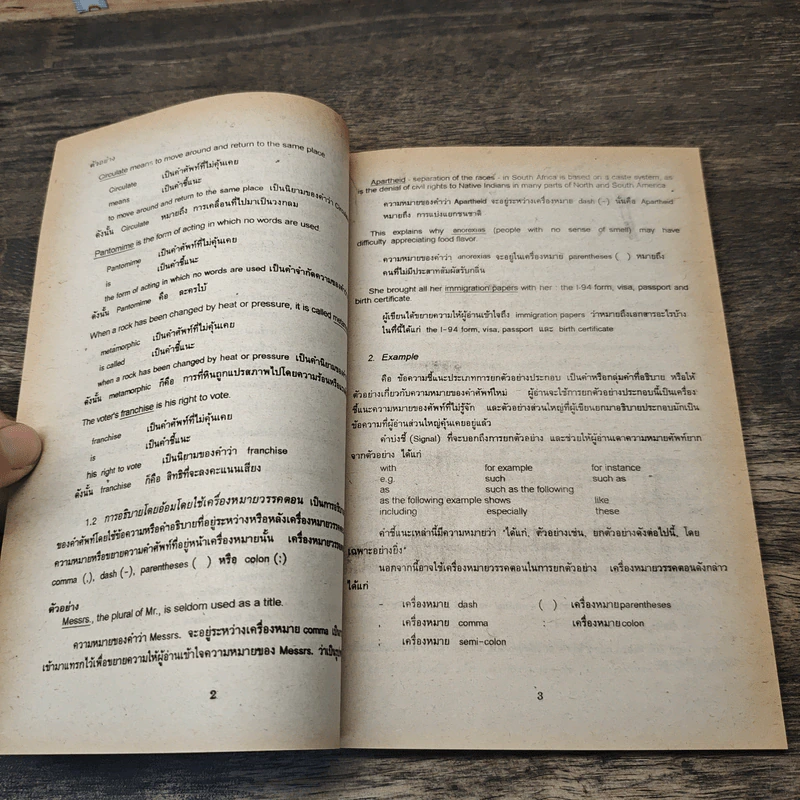 ตัวอย่าง
Circulate means to move around and return to the same place.
Circulate เป็นคำศัพท์ที่ไม่คุ้นเคย
means เป็นคำชี้แนะ
to move around and return to the same place เป็นนิยามของคำว่า
ดังนั้น Circulate หมายถึง การเคลื่อนที่ไปมาเป็นวงกลม
Pantomime is the form of acting in which no words are used.
Pantomime เป็นคำศัพท์ที่ไม่คุ้นเคย
is เป็นคำชี้แนะ
the form of acting in which no words are used เป็นคำจำกัดความของคำ
ดังนั้น Pantomime คือ ละครใบ้
When a rock has been changed by heat or pressure, it is called
metamorphic เป็นคำศัพท์ที่ไม่คุ้นเคย
is called เป็นคำชี้แนะ
when a rock has been changed by heat or pressure เป็นคำนิยามของ
ดังนั้น metamorphic ก็คือ การที่หินถูกแปรสภาพไปโดยความร้อนหรือ
The voter's franchise is his right to vote.
franchise เป็นคำศัพท์ที่ไม่คุ้นเคย
is เป็นคำชี้แนะ
his right to vote เป็นนิยามของคำว่า franchise
ดังนั้น franchise ก็คือ สิทธิที่จะลงคะแนนเสียง
1.2 การอธิบายโดยอ้อมโดยใช้เครื่องหมายวรรคตอน เป็นการ
ของคำศัพท์โดยใช้ข้อความหรือคำอธิบายที่อยู่ระหว่างหรือหลังเครื่องหมายวรรค
ความหมายหรือขยายความคำศัพท์ที่อยู่หน้าเครื่องหมายนั้น เครื่องหมายวรรค
comma (,), dash (–), parentheses ( ) หรือ colon (:)
ตัวอย่าง
Messrs., the plural of Mr., is seldom used as a title.
ความหมายของคำว่า Messrs. จะอยู่ระหว่างเครื่องหมาย comma
เข้ามาแทรกไว้เพื่อขยายความให้ผู้อ่านเข้าใจความหมายของ Messrs. ว่าเป็น
2
Apartheid - separation of the races - in South Africa is based on a caste system, as
is the denial of civil rights to Native Indians in many parts of North and South America.
ความหมายของคำว่า Apartheid จะอยู่ระหว่างเครื่องหมาย dash (–) นั่นคือ Apartheid
หมายถึง การแบ่งแยกชนชาติ
This explains why anorexias (people with no sense of smell) may have
difficulty appreciating food flavor.
ความหมายของคำว่า anorexias จะอยู่ในเครื่องหมาย parentheses ( ) หมายถึง
คนที่ไม่มีประสาทสัมผัสรับกลิ่น
She brought all her immigration papers with her : the I-94 form, visa, passport and
birth certificate.
ผู้เขียนได้ขยายความให้ผู้อ่านเข้าใจถึง immigration papers ว่าหมายถึงเอกสารอะไรบ้าง
ในที่นี้ได้แก่ the I-94 form, visa, passport และ birth certificate
2. Example
คือ ข้อความชี้แนะประเภทการยกตัวอย่างประกอบ เป็นคำหรือกลุ่มคำที่อธิบาย หรือให้
ตัวอย่างเกี่ยวกับความหมายของคำศัพท์ใหม่ ผู้อ่านจะใช้การยกตัวอย่างประกอบนี้เป็นเครื่อง
ชี้แนะความหมายของศัพท์ที่ไม่รู้จัก และตัวอย่างส่วนใหญ่ที่ผู้เขียนยกมาอธิบายประกอบมักเป็น
ข้อความที่ผู้อ่านส่วนใหญ่คุ้นเคยอยู่แล้ว
คำบ่งชี้ (Signal) ที่จะบอกถึงการยกตัวอย่าง และช่วยให้ผู้อ่านเดาความหมายศัพท์ยาก
จากตัวอย่าง ได้แก่
with for example for instance
e.g. such such as
as such as the following
as the following example shows like
including especially these
คำชี้แนะเหล่านี้มีความหมายว่า "ได้แก่, ตัวอย่างเช่น, ยกตัวอย่างดังต่อไปนี้, โดย
เฉพาะอย่างยิ่ง"
นอกจากนี้อาจใช้เครื่องหมายวรรคตอนในการยกตัวอย่าง เครื่องหมายวรรคตอนดังกล่าว
ได้แก่
- เครื่องหมาย dash ( ) เครื่องหมาย parentheses
, เครื่องหมาย comma : เครื่องหมาย colon
; เครื่องหมาย semi-colon
3